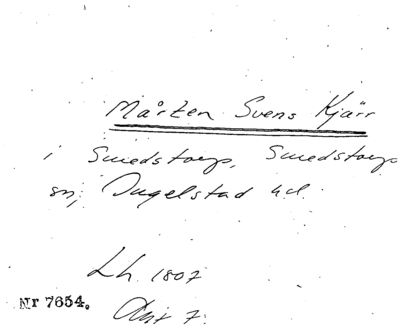 Mårten Svens Kjärr
i Smedstorp, Smedstorps
sn, Ingelstad hd.
Lh. 1807
Nr 7654. Avt 7.